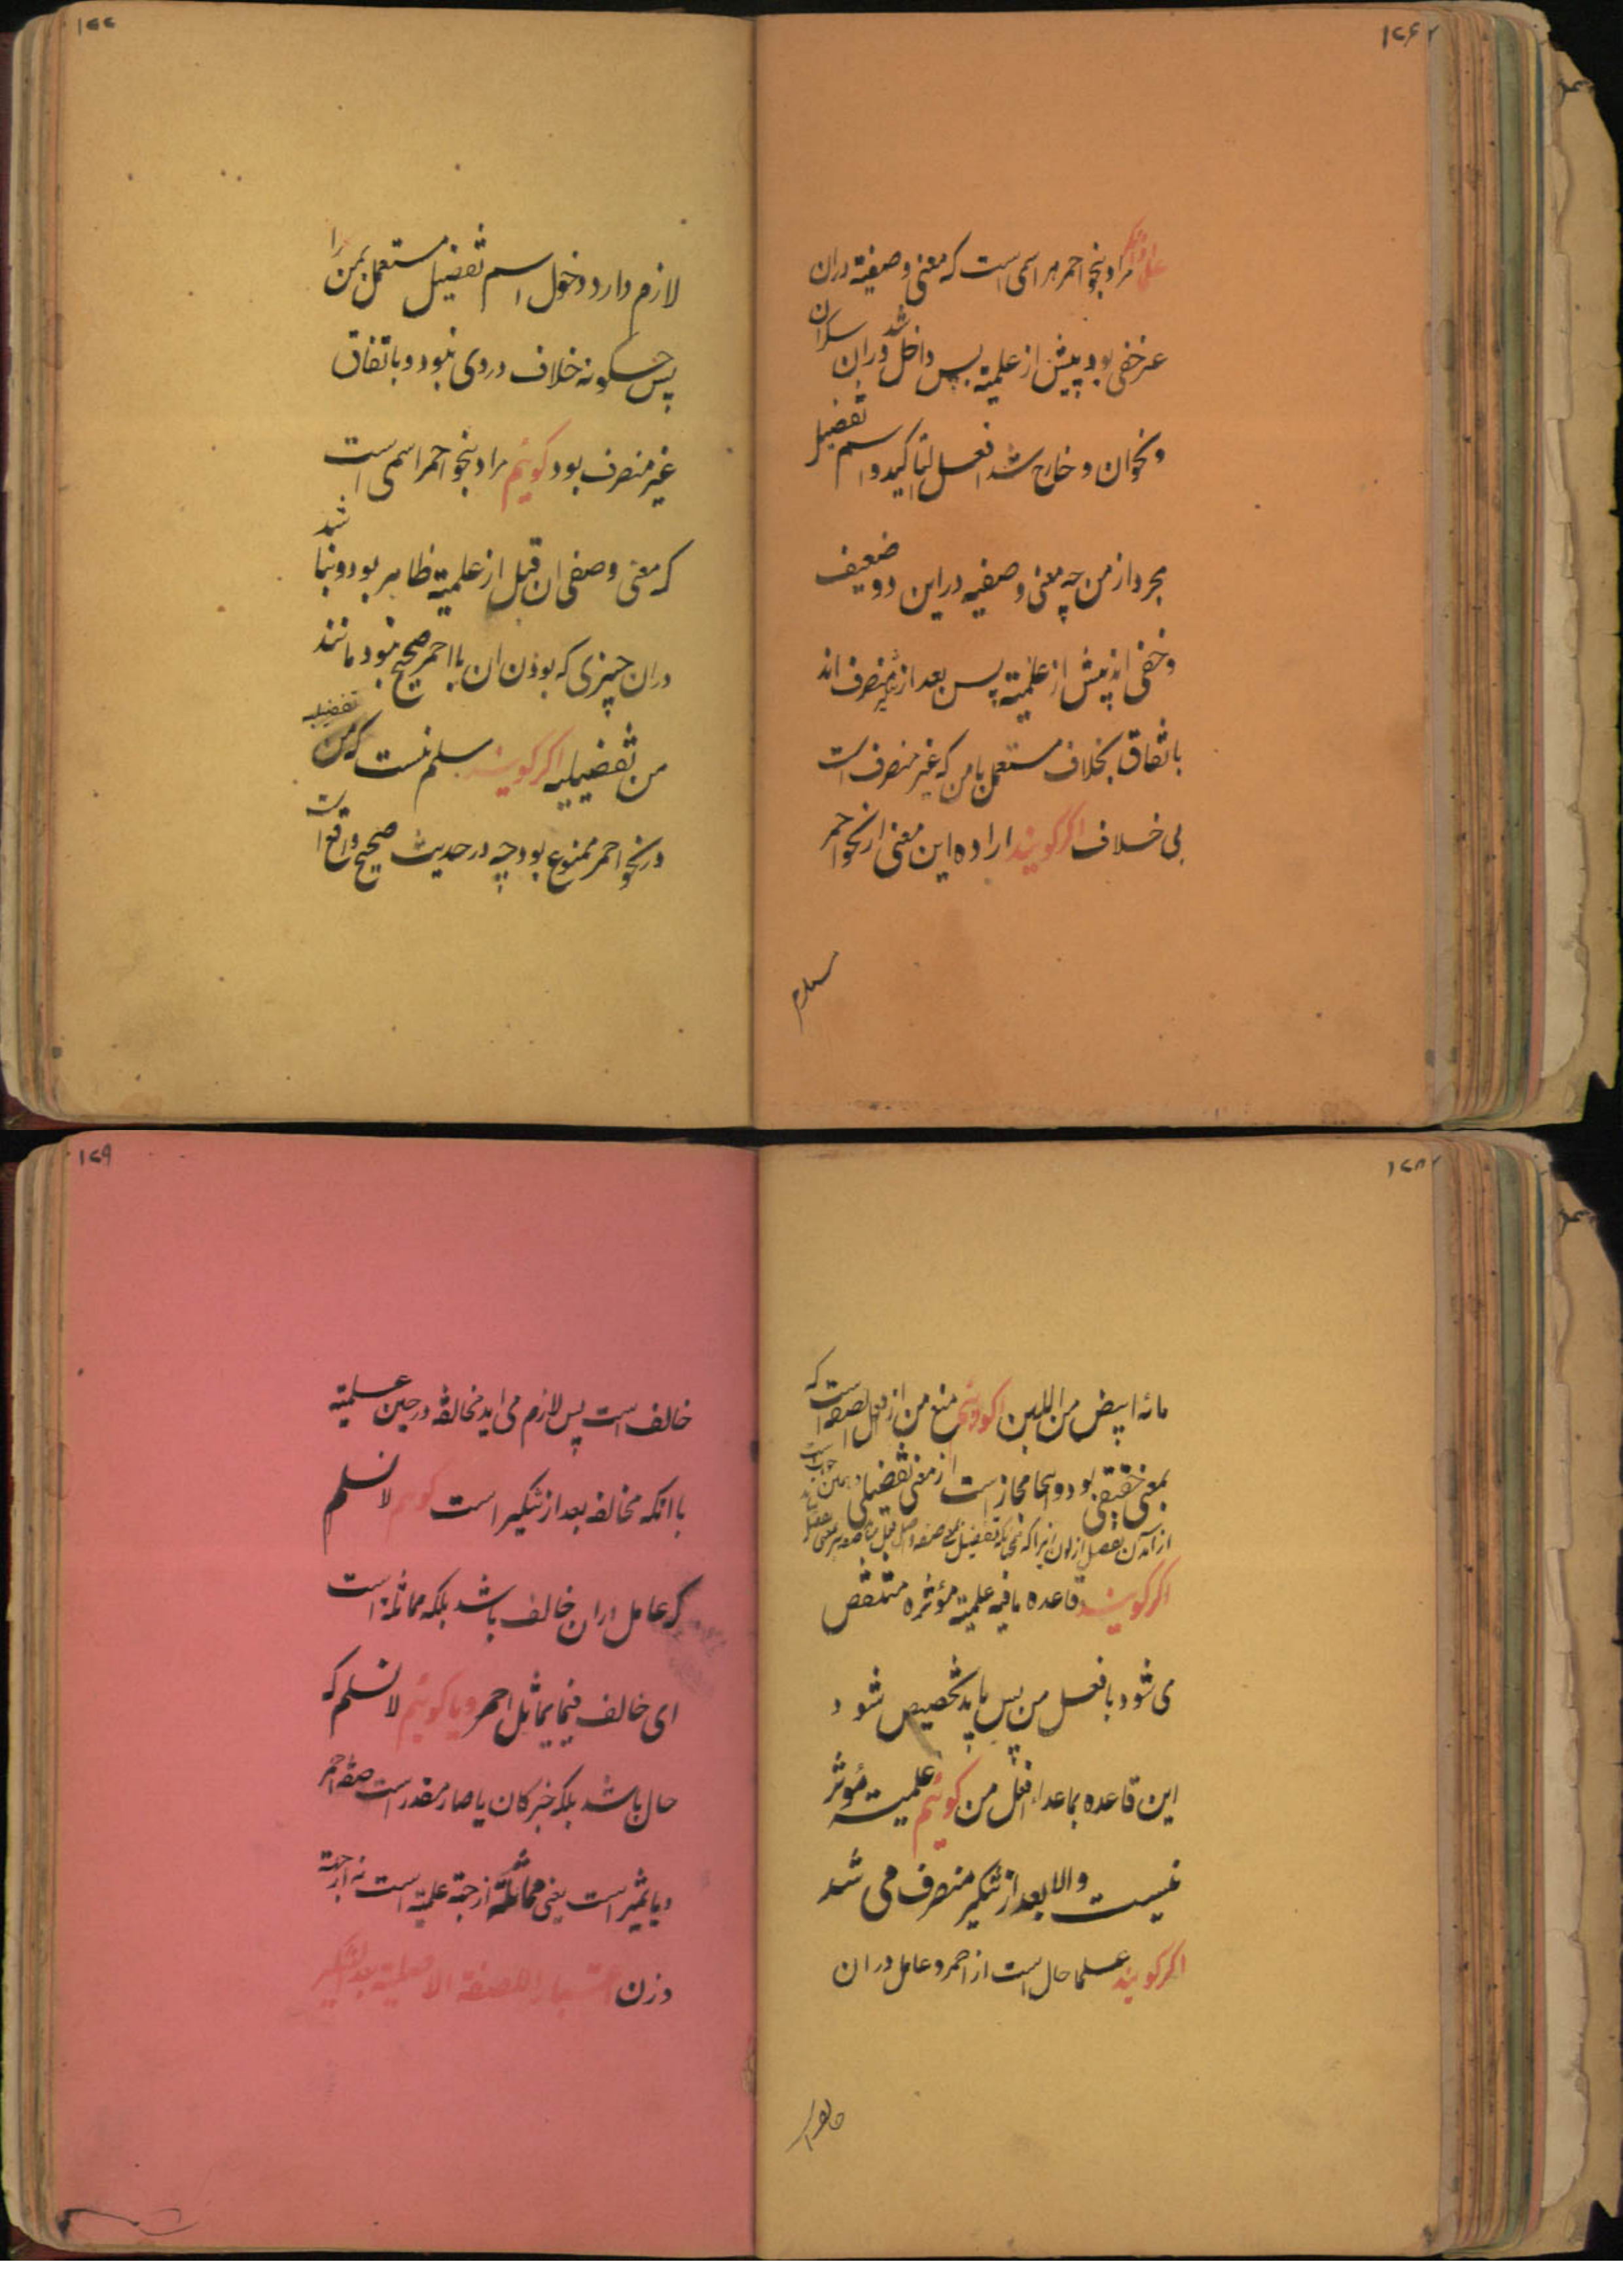 ۱۷۶
علما اذا نکر مراد بنحو احمر هر اسمی است که معنی وصفیة دران
غیر خفی بود پیش از علمیة پس داخل شد دران سکران
و نحو ان و خارج شد افعل لتاکید و اسم تفضیل
مجرد از من چه معنی وصفیه در این دو ضعیف
و خفی اند پیش از علمیة پس بعد از تنکیر منصرف اند
باتفاق بخلاف مستعمل بامن که غیر منصرف است
بی خلاف اگر گویند اراده این معنی از نحو احمر
لازم
۱۷۷
لازم دارد دخول اسم تفضیل مستعمل بمن را
پس چگونه خلاف در وی نبود و باتفاق
غیر منصرف بود گوئیم مراد بنحو احمر اسمی است
که معنی وصفی ان قبل از علمیة ظاهر بود و نباشد
دران چیزی که بودن ان با احمر صحیح نبود مانند
من تفضیلیه اگر گویند مسلم نیست که من تفضیلیه
در نحو احمر ممنوع بود چه در حدیث صحیح واقع است
۱۷۸
مائه ابیض من اللبن گوئیم منع من از افعل الصفة است که
بمعنی حقیقی بود و اینجا مجاز است از معنی تفضیلی و همین جواب است
اگر گویند قاعده مافیه علمیة مؤثره منتقض
می شود بافعل من پس باید تخصیص شود
این قاعده بماعداء افعل من گوئیم علمیت مؤثر
نیست والا بعد از تنکیر منصرف می شد
اگر گویند علما حال است از احمر و عامل دران
خالف
۱۷۹
خالف است پس لازم می اید مخالفة در حین علمیة
با انکه مخالفه بعد از تنکیر است گوئیم لا نسلم
که عامل دران خالف باشد بلکه مماثلة است
ای خالف فیما یماثل احمر و یا گوئیم لا نسلم که
حال باشد بلکه خبر کان یا صار مقدر است صفة احمر
و یا تمیز است یعنی مماثلة از جهة علمیة است نه از جهة
وزن اعتبارا للصفة الاصلیة بعد التنکیر